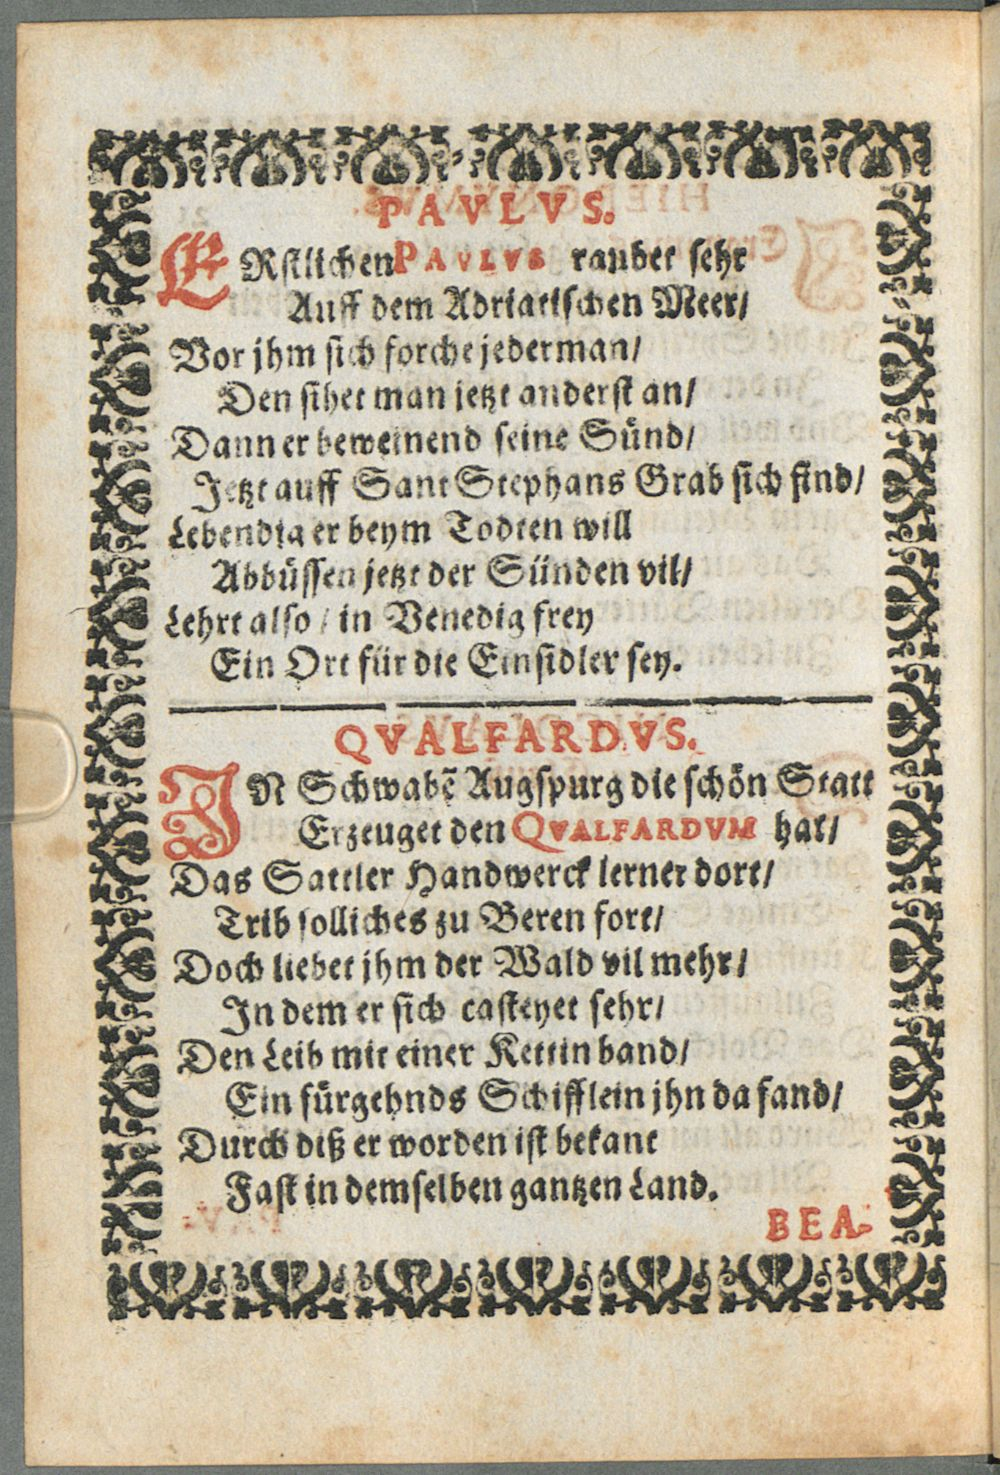 PAVLVS.
ERstlichen PAVLVS raubet sehr
Auff dem Adriatischen Meer/
Vor jhm sich forcht jederman/
Den sihet man jetzt anderst an/
Dann er beweinend seine Sünd/
Jetzt auff Sant Stephans Grab sich find/
Lebendig er beym Todten will
Abbüssen jetzt der Sünden vil/
Lehrt also / in Venedig frey
Ein Ort für die Einsidler sey.
QVALFARDVS.
IN Schwabẽ Augspurg die schön Statt
Erzeuget den QVALFARDVM hat/
Das Sattler Handwerck lernet dort/
Trib solliches zu Beren fort/
Doch liebet jhm der Wald vil mehr/
In dem er sich casteyet sehr/
Den Leib mit einer Kettin band/
Ein fürgehnds Schifflein jhn da fand/
Durch diß er worden ist bekant
Fast in demselben gantzen Land.
BEA-